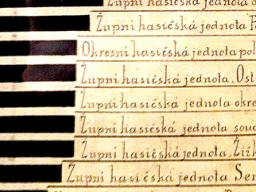 Župní hasičská jednota
Župní hasičská jednota
Okresní hasičská jednota pol
Župní hasičská jednota. Ost
Župní hasičská jednota okre
Župní hasičská jednota soud
Župní hasičská jednota. Žižk
Župní hasičská jednota Sen